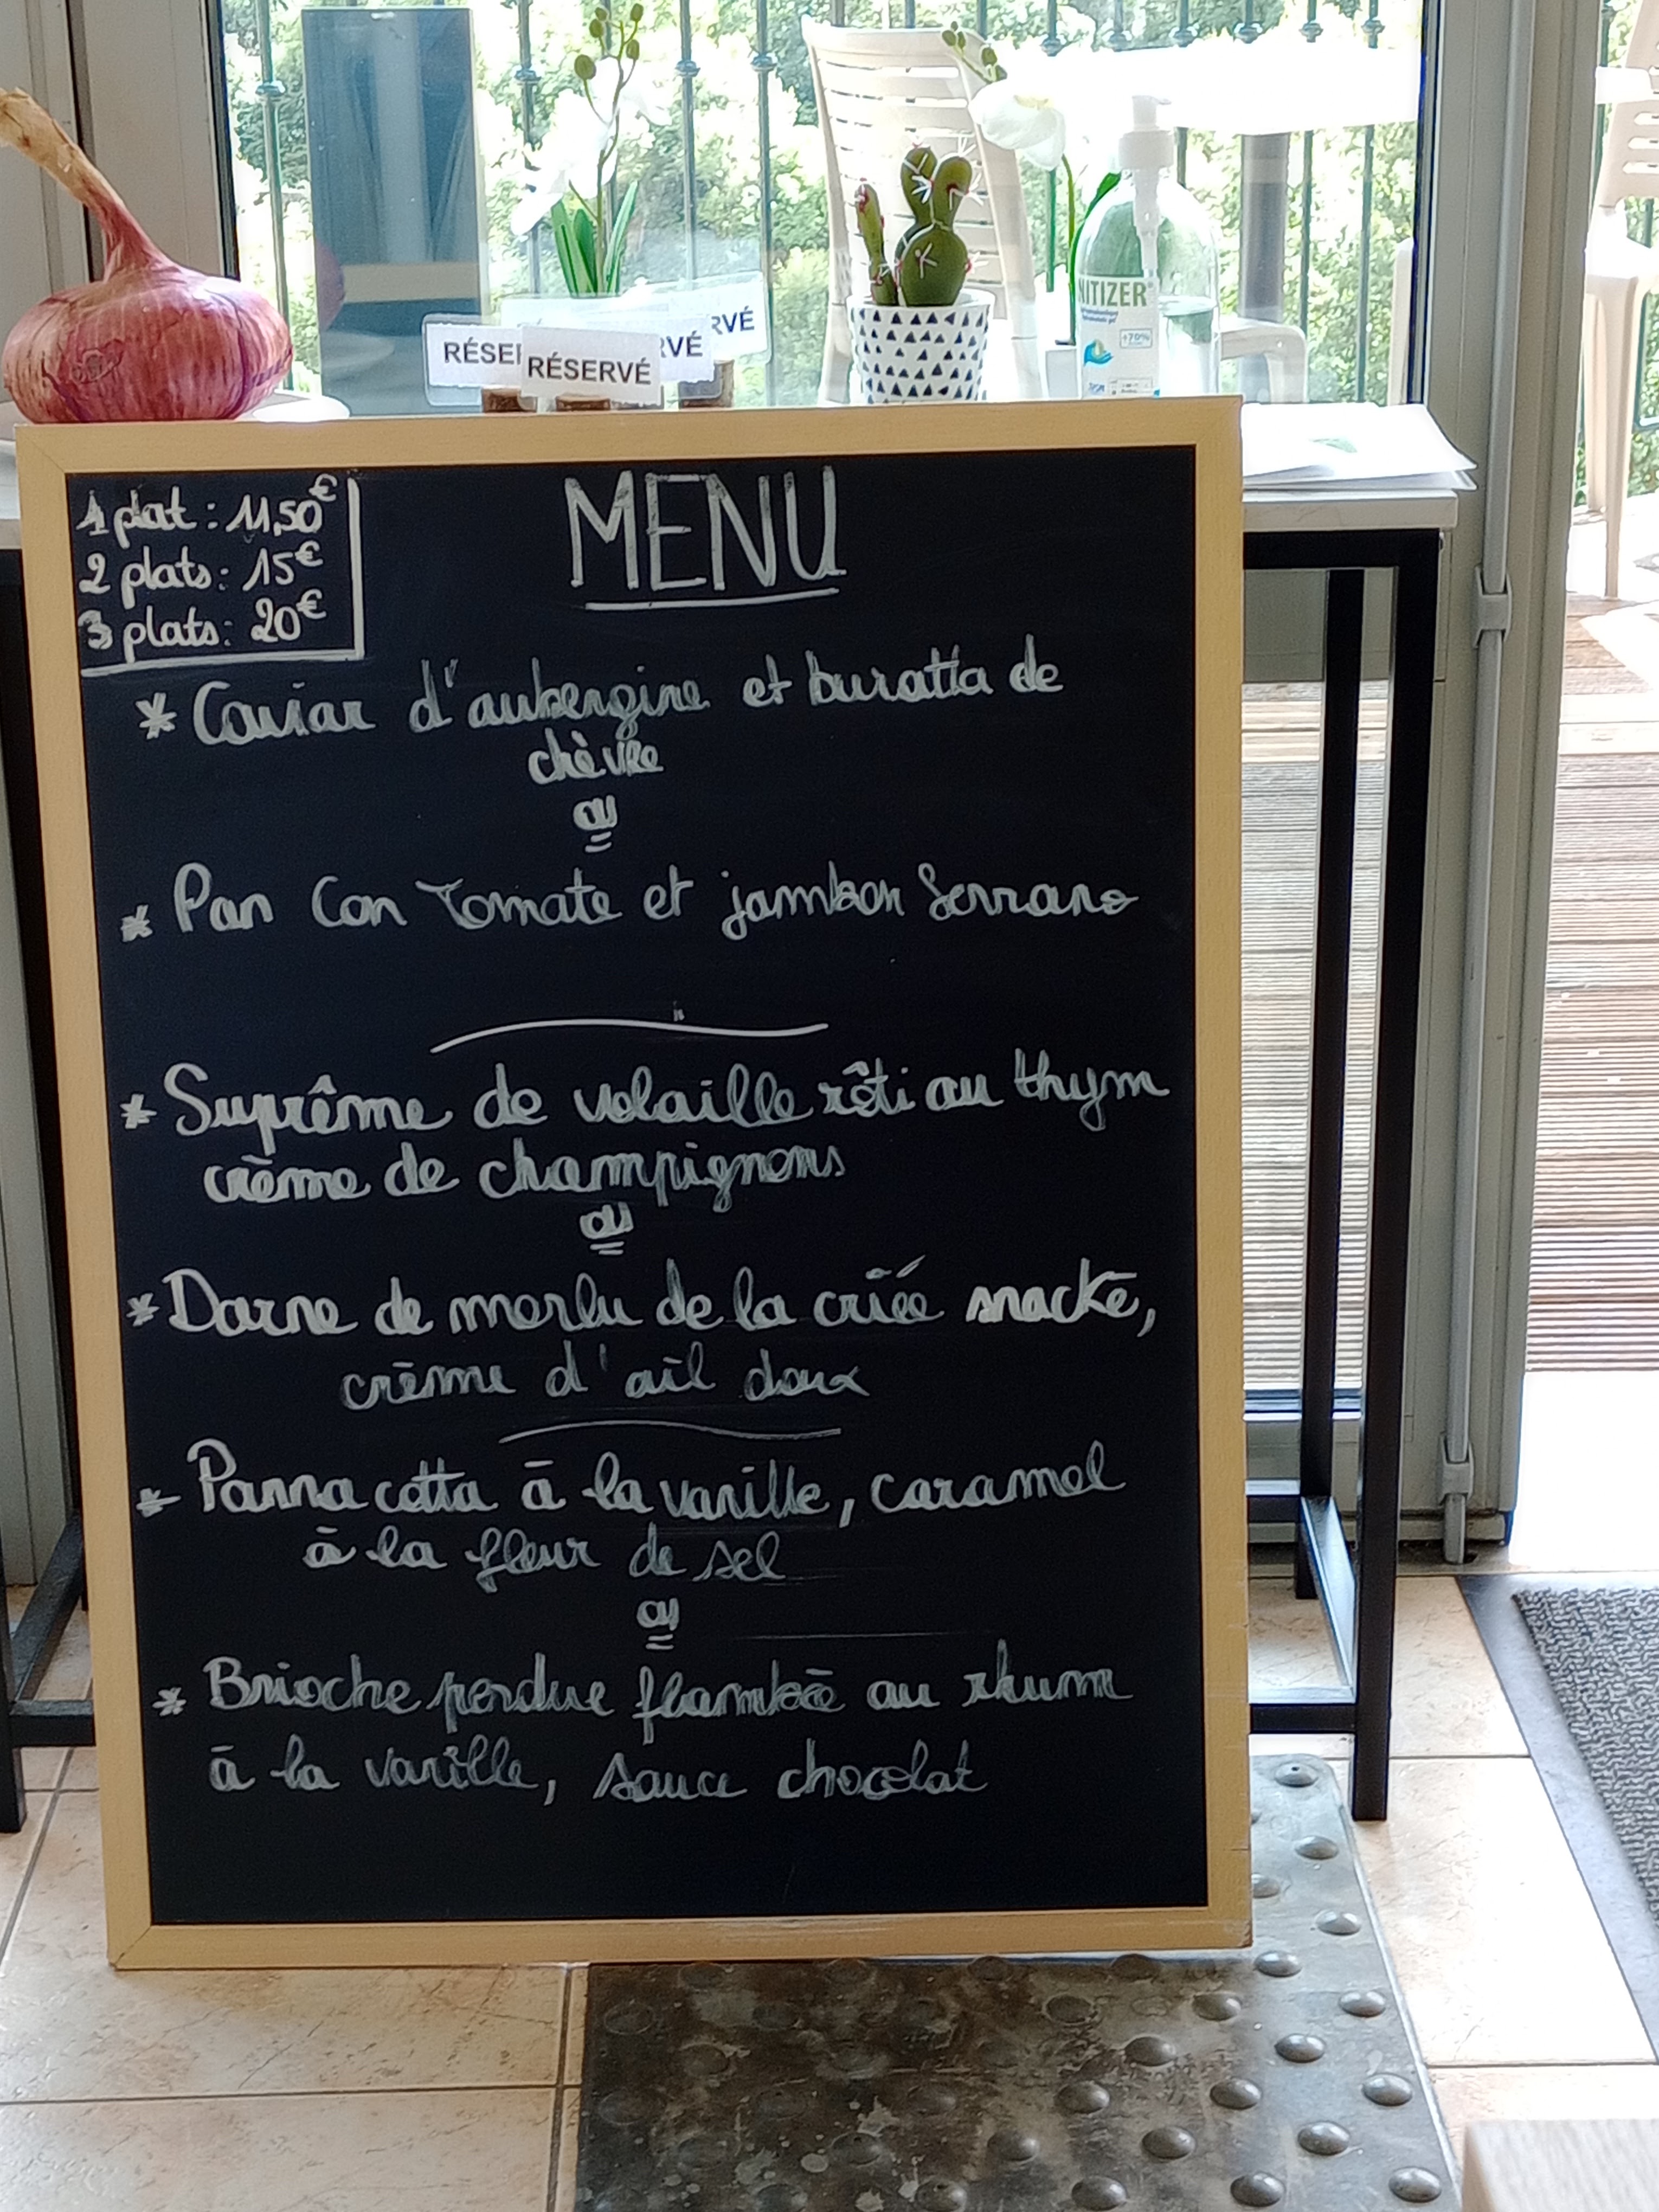 RÉSE
RÉSERVÉ
RVÉ
RVÉ
NITIZER
+70%
1 plat : 11,50€
2 plats : 15€
3 plats : 20€
MENU
* Caviar d'aubergine et buratta de
chèvre
ou
* Pan Con Tomate et jambon Serrano
* Suprême de volaille rôti au thym
crème de champignons
ou
* Darne de merlu de la criée snacké,
crème d'ail doux
* Panna cotta à la vanille, caramel
à la fleur de sel
ou
* Brioche perdue flambée au rhum
à la vanille, sauce chocolat